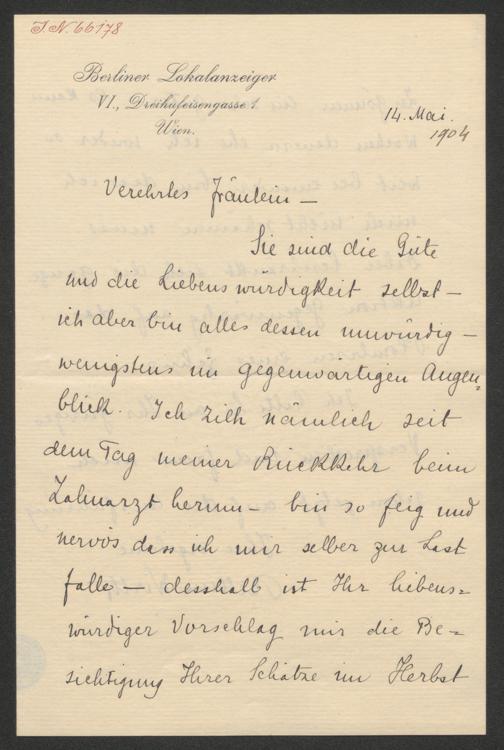 I.N. 66178
Berliner Lokalanzeiger
VI., Dreihufeisengasse 1.
Wien.
14. Mai.
1904
Verehrtes Fräulein –
Sie sind die Güte
und die Liebenswürdigkeit selbst –
ich aber bin alles dessen unwürdig –
wenigstens im gegenwärtigen Augen=
blick. Ich zieh nämlich seit
dem Tag meiner Rückkehr beim
Zahnarzt herum – bin so feig und
nervös dass ich mir selber zur Last
falle – desshalb ist Ihr liebens=
würdiger Vorschlag mir die Be=
sichtigung Ihrer Schätze im Herbst